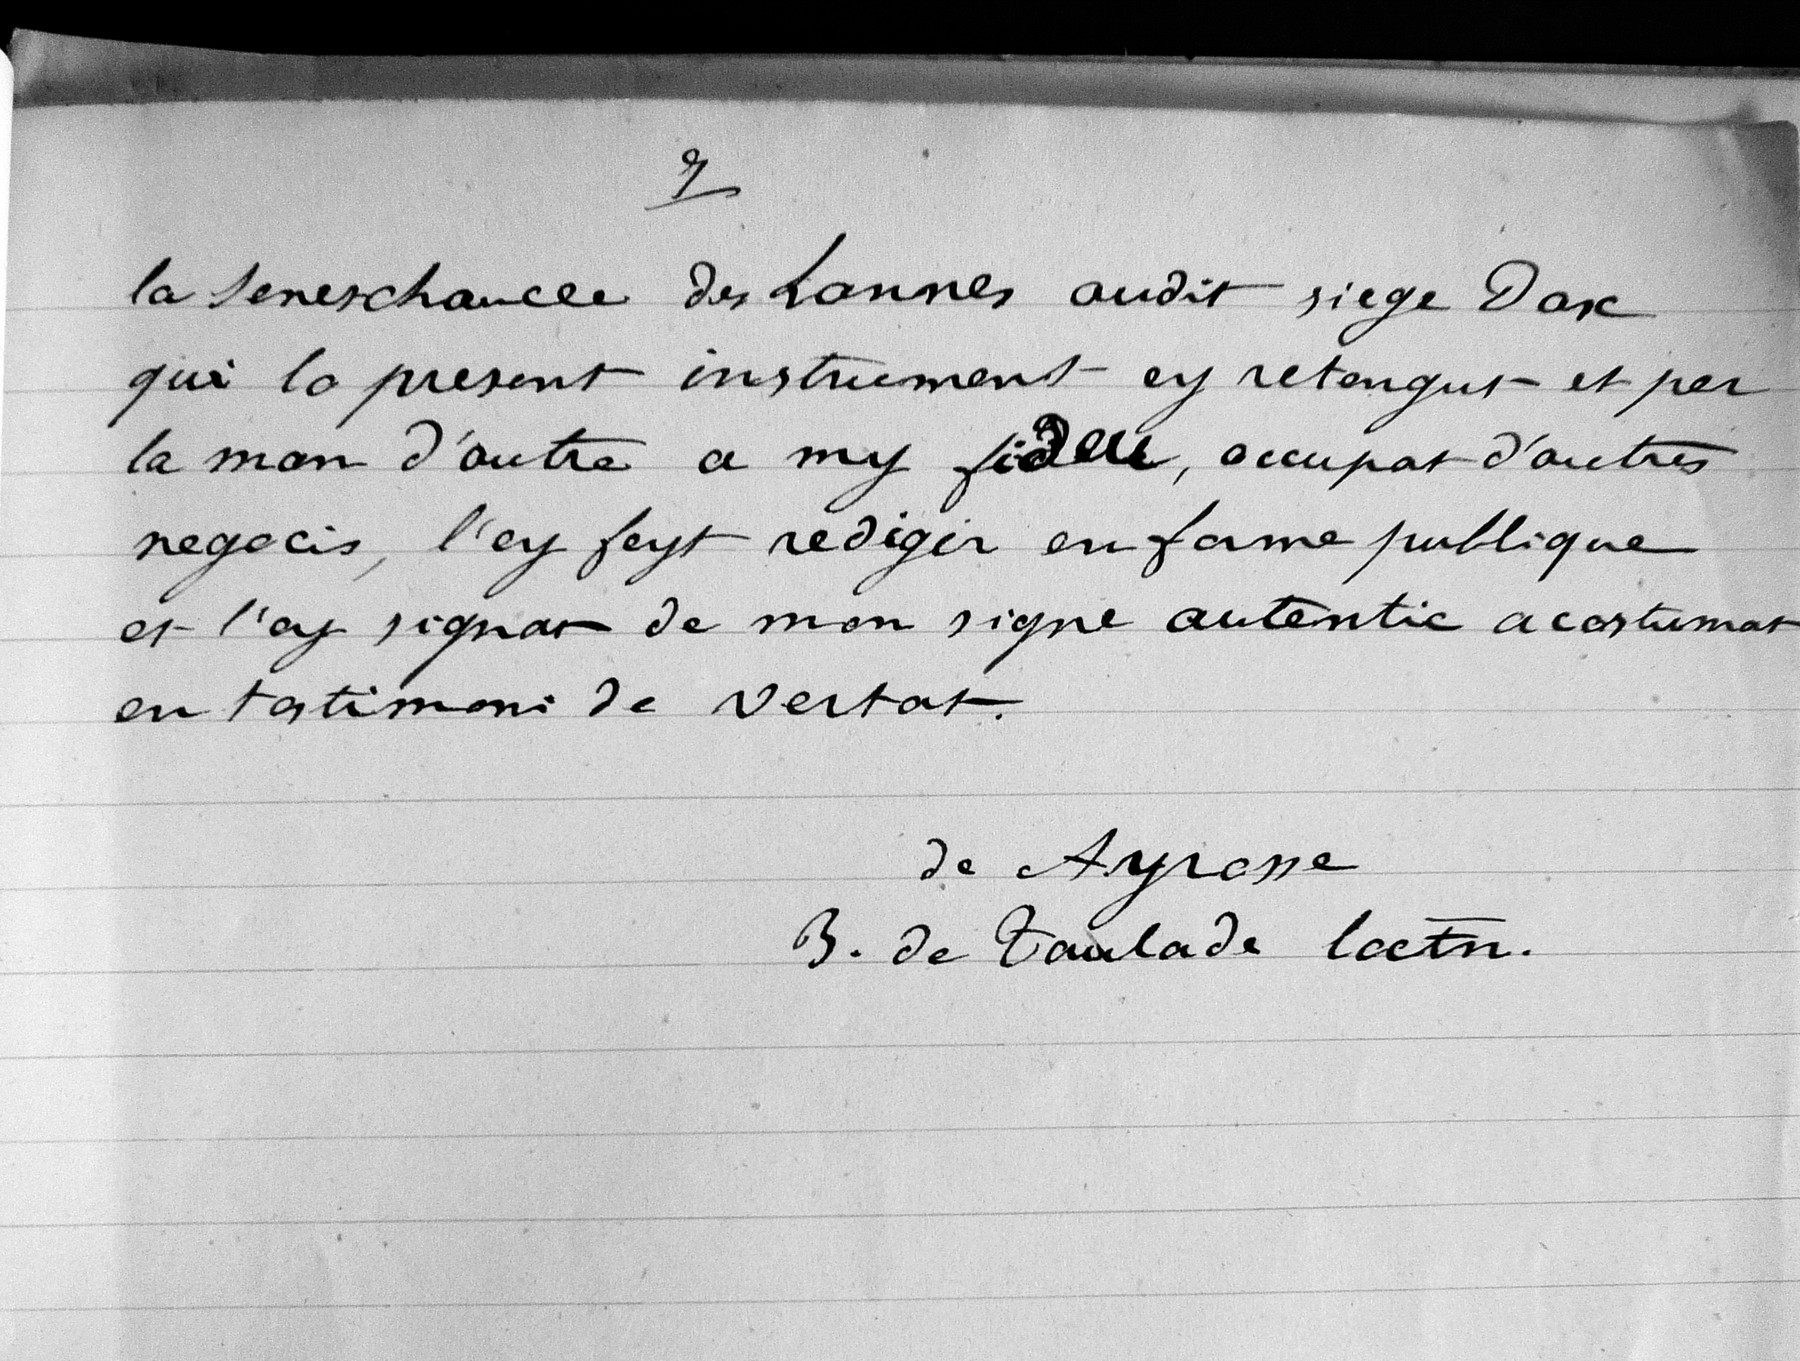 la seneschaucee des Lannes audit siege Dax
qui lo present instrument ey retengut et per
la man d'autre a my fideu, occupat d'autres
negocis, l'ey feyt redigir en forme publique
et l'ey signat de mon signe autentic acostumat
en testimoni de vertat.
de Ayrosse
B. de Taulade loctn.